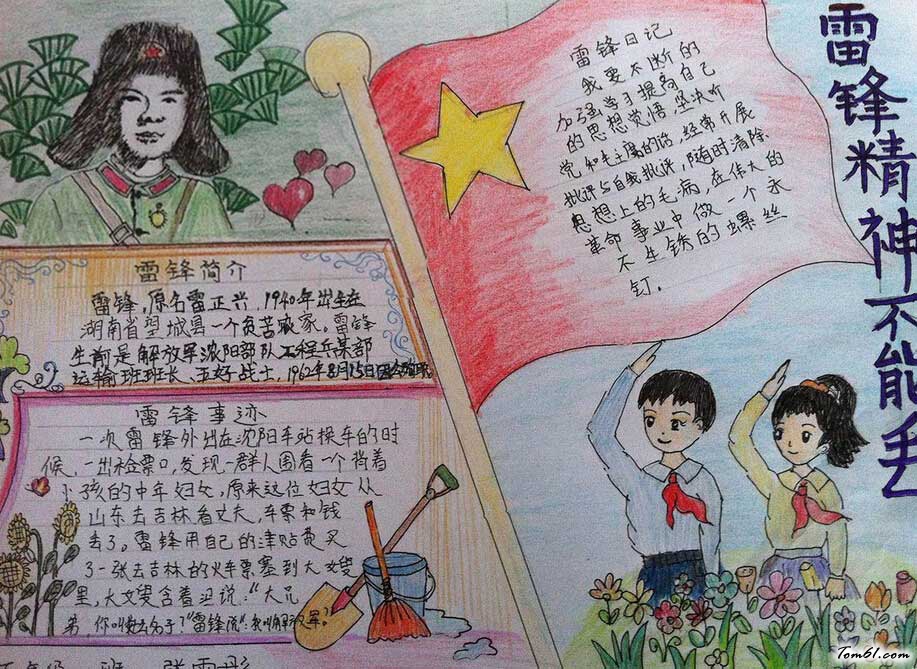 雷锋精神不能丢
雷锋日记
我要不断的
加强学习提高自己
的思想觉悟,坚决听
党和毛主席的话,经常开展
批评与自我批评,随时清除
思想上的毛病,在伟大的
革命事业中做一个永
不生锈的螺丝
钉.
雷锋简介
雷锋,原名雷正兴,1940年出生在
湖南省望城县一个贫苦农家。雷锋
生前是解放军沈阳部队工程兵某部
运输班班长、五好战士,1962年8月15日因公殉职
雷锋事迹
一次雷锋外出在沈阳车站换车的时
候,一出检票口,发现一群人围着一个背着
小孩的中年妇女,原来这位妇女从
山东去吉林看丈夫,车票和钱
丢了。雷锋用自己的津贴费买
了一张去吉林的火车票塞到大嫂
里,大嫂含着泪说:"大兄
弟,你叫什么名字
Tom61.com